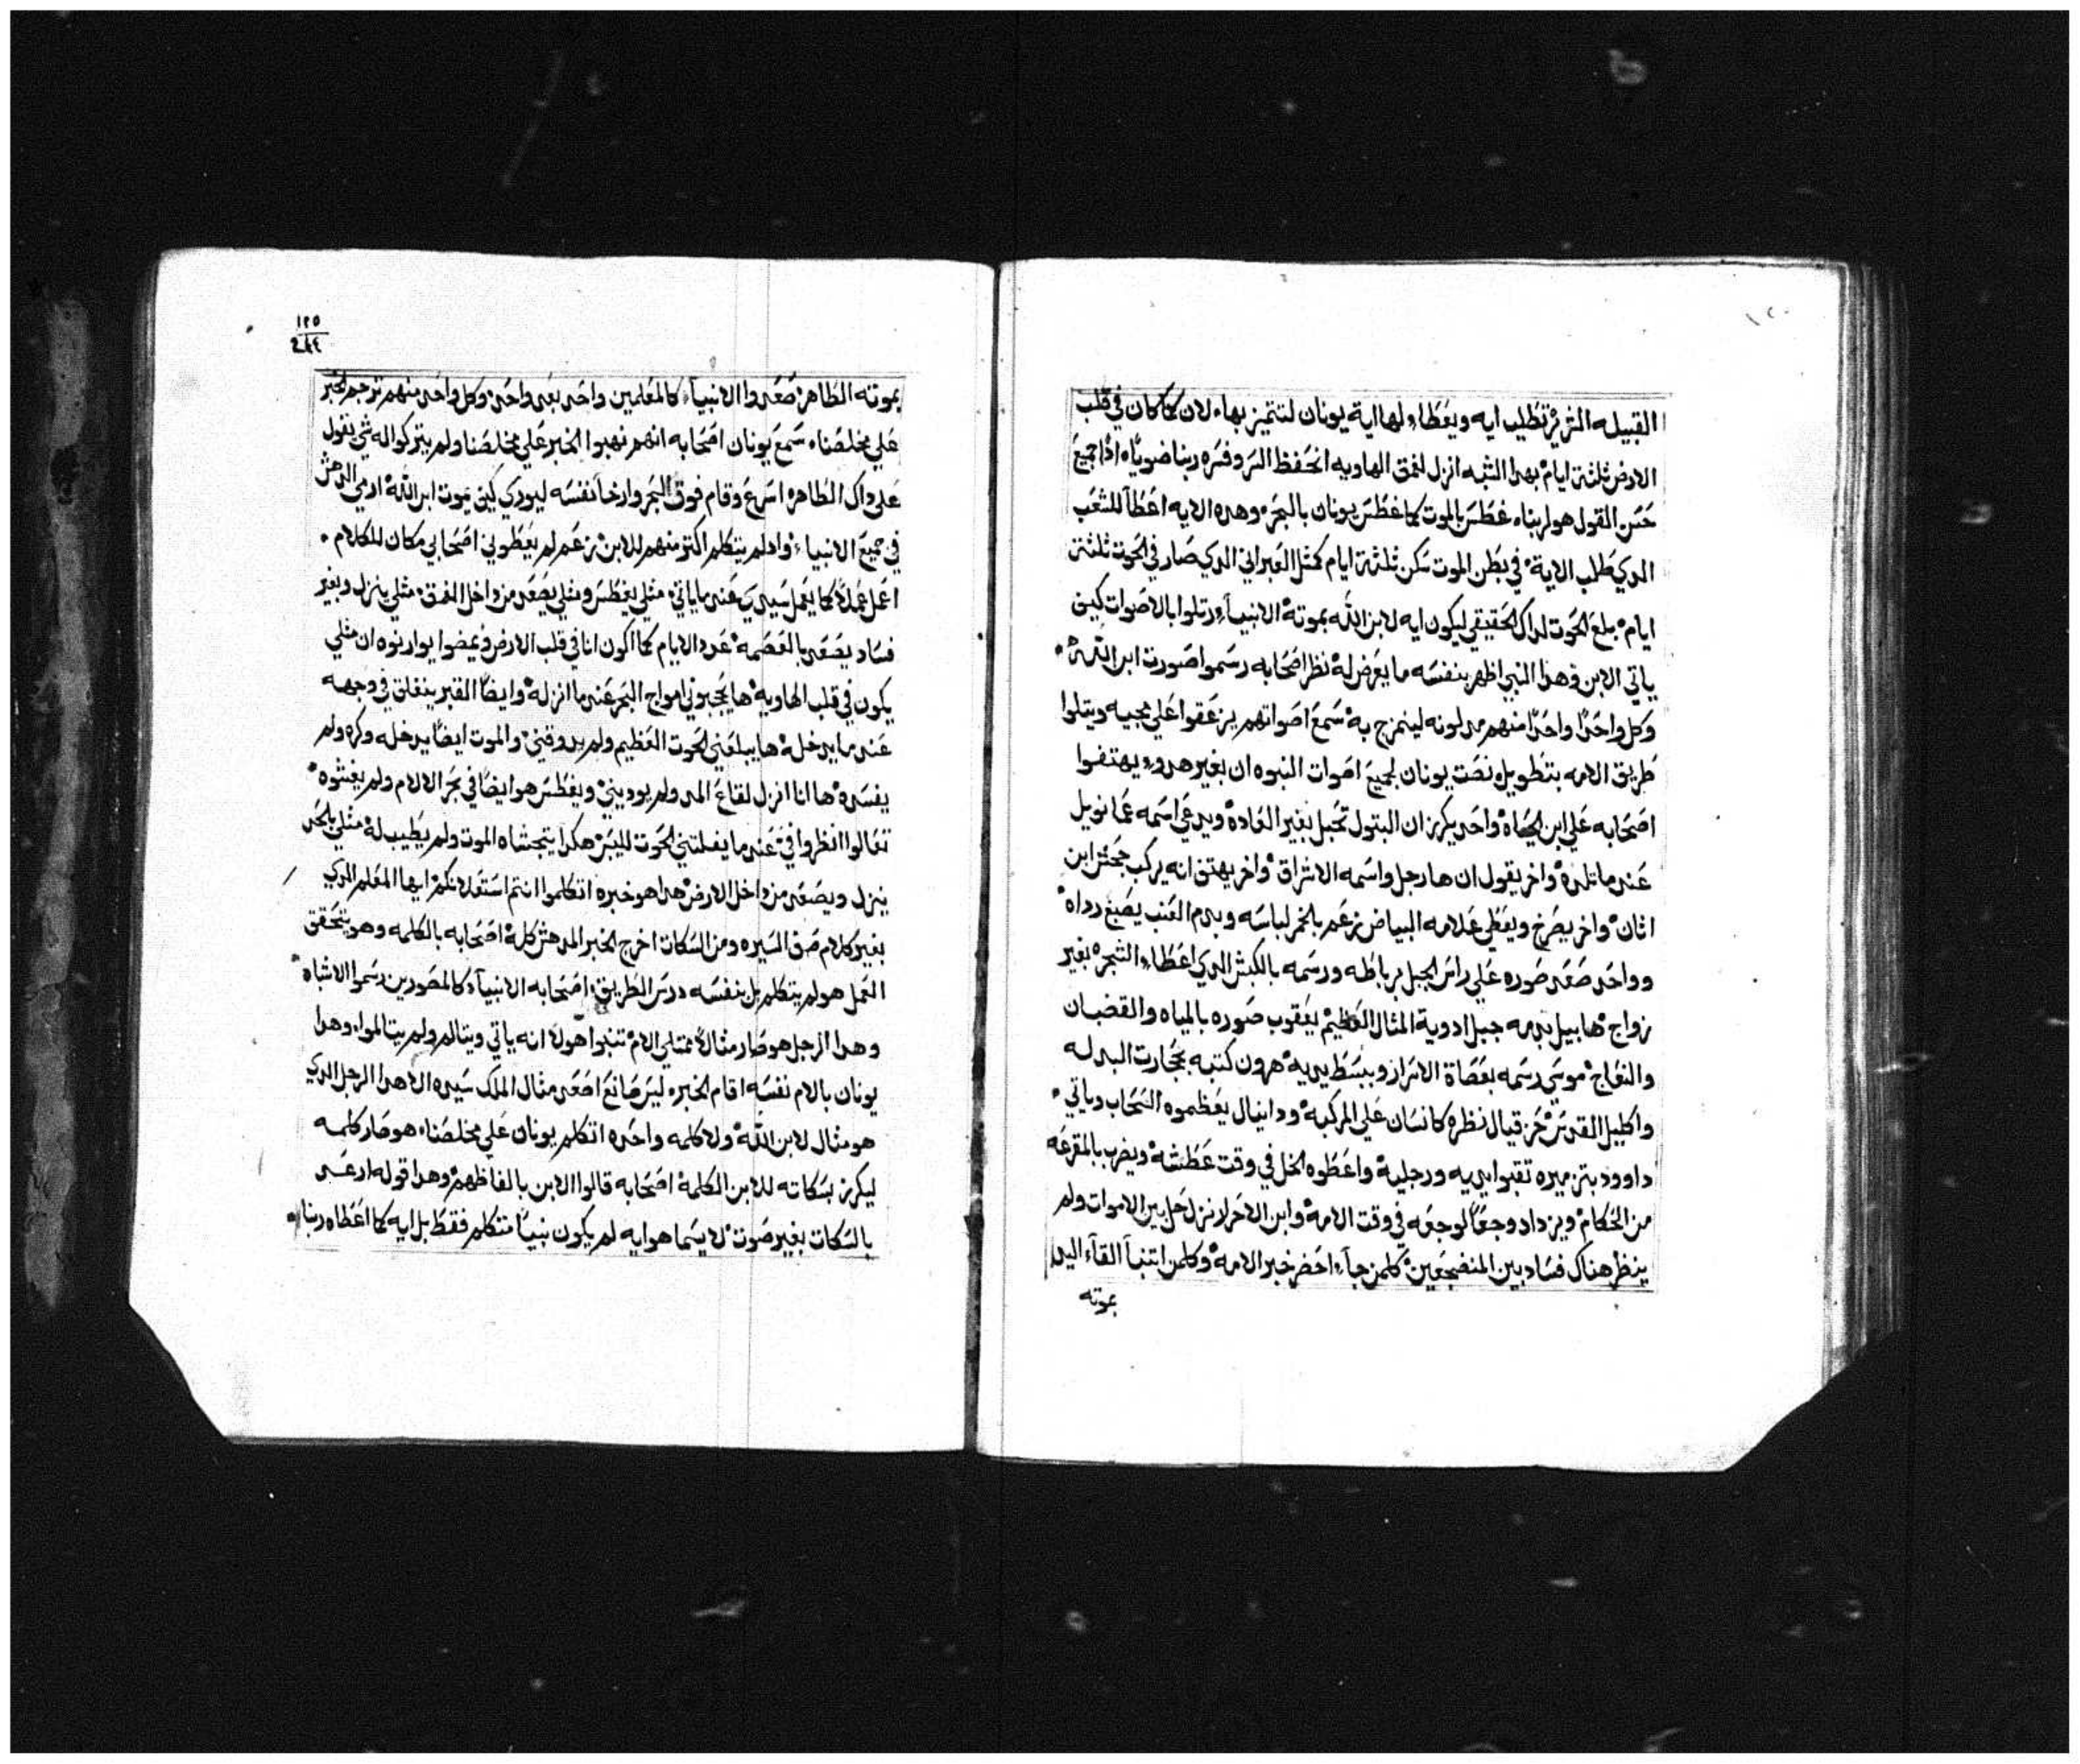 القبيله الشريرة تطلب ايه ويعطاء لها اية يونان لتتميز بهاء لان كما كان في قلب
الارض ثلثة ايام بهدا الشبه انزل لعمق الهاويه انحفظ السر وفسره ربنا ضوياء اذا جميع
حسن القول هو لربناء غطس بالموت كما غطس يونان بالبحر وهده الايه اعطا للشعب
الدي طلب الاية في بطن الموت سكن ثلثة ايام كمثل العبراني الدي صار في الحوت ثلثة
ايام بلع الحوت لداك الحقيقي ليكون ايه لابن الله بموتة الانبياء رتلوا بالاصوات كيف
ياتي الابن وهدا النبي اظهر بنفسه ما يعرض له نظر اصحابه رسموا صورت ابن الله
وكل واحدا واحدا منهم مدلونه ليتمزج به سمع اصواتهم يزعقوا علي مجيه ويتلوا
طريق الامه بتطويل نصت يونان لجميع اصوات النبوه ان بغير هدو يهتفوا
اصحابه علي ابن الحياة واحد يكرز ان البتول تحبل بغير العاده ويدعي اسمه عمانويل
عندما تلده واخر يقول ان ها رجل واسمه الاشراق واخر يهتف انه يركب جحش ابن
اتان واخر يصرخ ويعطي علامه البياض زعم بالخمر لباسه وبدم العنب يصبغ رداه
وواحد صعد صوره علي راس الجبل برباطه ورسمه بالكبش الدي اعطاء الشجره بغير
زواج هابيل بدمه جبل ادوية المثال العظيم يعقوب صوره بالمياه والقضبان
والنعاج موسي رسمه بعصاة الاسرار وببسط يديه هرون كتبه بحجارت البدله
واكليل القدس حزقيال نظره كانسان علي المركبه ودانيال يعظموه السحاب وياتي
داوود بتزميره تقبوا يديه ورجليه واعطوه الخل في وقت عطشه ويضرب بالمقرعه
من الحكام ويزداد وجعا لوجعه في وقت الامه وابن الاحرار نزل حل بين الاموات ولم
ينظر هناك فساد بين المنضجعين كلمن جاء احضر خبر الامه وكلمن اتنبا القاء اليد
بموته
١٢٥
بموته الطاهر صعدوا الانبياء كالمعلمين واحد بعد واحد وكل واحد منهم ترجم الخبر
علي مخلصناء سمع يونان اصحابه انهم نهبوا الخبر علي مخلصنا ولم يتركوا له شي يقول
علي داك الطاهر اسرع وقام فوق البحر وارخا نفسه ليوري كيف يموت ابن الله ارمي الدهش
في جميع الانبياء واد لم يتكلم اكتر منهم للابن زعم لم يعطوني اصحابي مكان للكلام
اعمل عملا كما يعمل سيدي عندما ياتي مثلي يغطس ومثلي يصعد من داخل العمق مثلي ينزل وبغير
فساد يصعد بالعصمه عدد الايام كما اكون انا في قلب الارض ويمضوا يوارنوه ان مثلي
يكون في قلب الهاويه ها يحجبوني امواج البحر عندما انزله وايضا القبر ينغلق في وجهه
عندما يدخله ها يبلعني الحوت العظيم ولم يدوقني والموت ايضا يدخله وكره ولم
يفسده ها انا انزل لقاع المد ولم يوديني ويغطس هو ايضا في بحر الالام ولم يغشوه
تعالوا انظروا في عندما يفلتني الحوت لليبس هكدا يتجشاه الموت ولم يطيب له مثلي بالحد
ينزل ويصعد من داخل الارض هدا هو خبره اتكلموا انتم استعد لانكم ايها المعلم الدي
بغير كلام صف السيره ومن السكات اخرج الخبر المدهش كلة اصحابه بالكلمه وهو يتحقق
العمل هو لم يتكلم بل بنفسه درس الطريق اصحابه الانبياء كالمصورين رسموا الاشباه
وهدا الرجل هو صار مثالا ممتلي الام تنبوا هولا انه ياتي ويتالم ولم يتالموا وهدا
يونان بالام نفسه اقام الخبر ليس صانع اصعد مثال الملك سيده الا هدا الرجل الدي
هو مثال لابن الله ولا كلمه واحده اتكلم يونان علي مخلصناء هو صار كلمه
ليكرز بسكاته للابن الكلمة اصحابه قالوا الابن بالفاظهم وهدا قوله ارعد
بالسكات بغير صوت لا سيما هو ايه لم يكون نبيا متكلم فقط بل ايه كما اعطاه ربنا